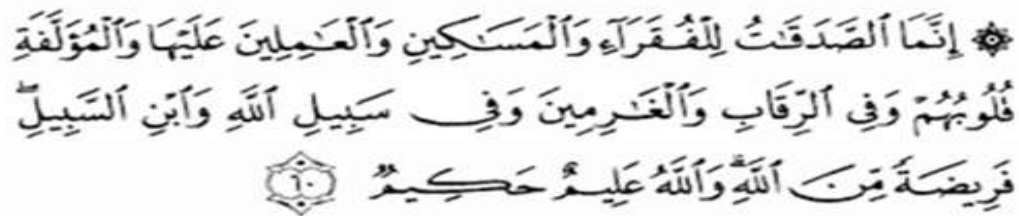 ۞ إِنَّمَا ٱلصَّدَقَٰتُ لِلْفُقَرَآءِ وَٱلْمَسَٰكِينِ وَٱلْعَٰمِلِينَ عَلَيْهَا وَٱلْمُؤَلَّفَةِ
قُلُوبُهُمْ وَفِى ٱلرِّقَابِ وَٱلْغَٰرِمِينَ وَفِى سَبِيلِ ٱللَّهِ وَٱبْنِ ٱلسَّبِيلِۖ
فَرِيضَةً مِّنَ ٱللَّهِۗ وَٱللَّهُ عَلِيمٌ حَكِيمٌ ٦٠